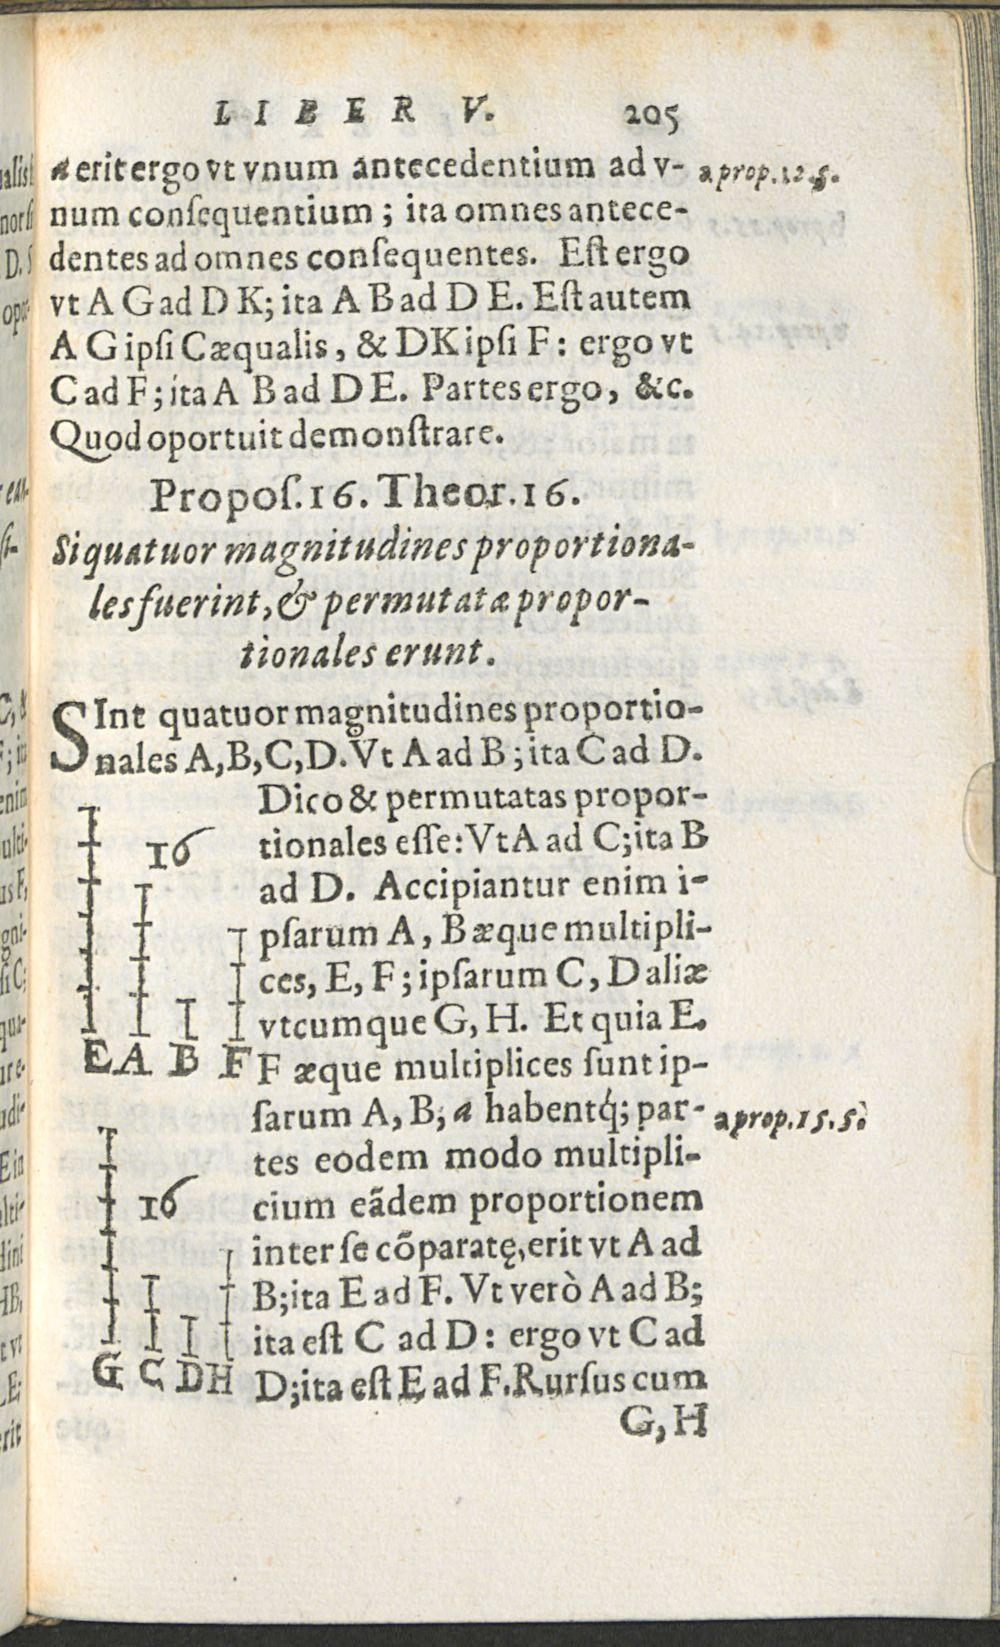 LIBER V. 205
a erit ergo vt vnum antecedentium ad v- a prop. 12. 5.
num conſequentium; ita omnes antece-
dentes ad omnes conſequentes. Eſt ergo
vt A G ad D K; ita A B ad D E. Eſt autem
A G ipſi C æqualis, & DK ipſi F: ergo vt
C ad F; ita A B ad D E. Partes ergo, &c.
Quod oportuit demonſtrare.
Propoſ. 16. Theor. 16.
Si quatuor magnitudines proportiona-
les fuerint, & permutatæ propor-
tionales erunt.
SInt quatuor magnitudines proportio-
nales A, B, C, D. Vt A ad B; ita C ad D.
Dico & permutatas propor-
tionales eſſe: Vt A ad C; ita B
16
ad D. Accipiantur enim i-
pſarum A, B æque multipli-
ces, E, F; ipſarum C, D aliæ
vtcumque G, H. Et quia E,
E A B F
F æque multiplices ſunt ip-
ſarum A, B; a habentq́; par- a prop. 15. 5.
tes eodem modo multipli-
cium eãdem proportionem
16
inter ſe cõparatę, erit vt A ad
B; ita E ad F. Vt verò A ad B;
ita eſt C ad D: ergo vt C ad
G C D H
D; ita eſt E ad F. Rurſus cum
G, H